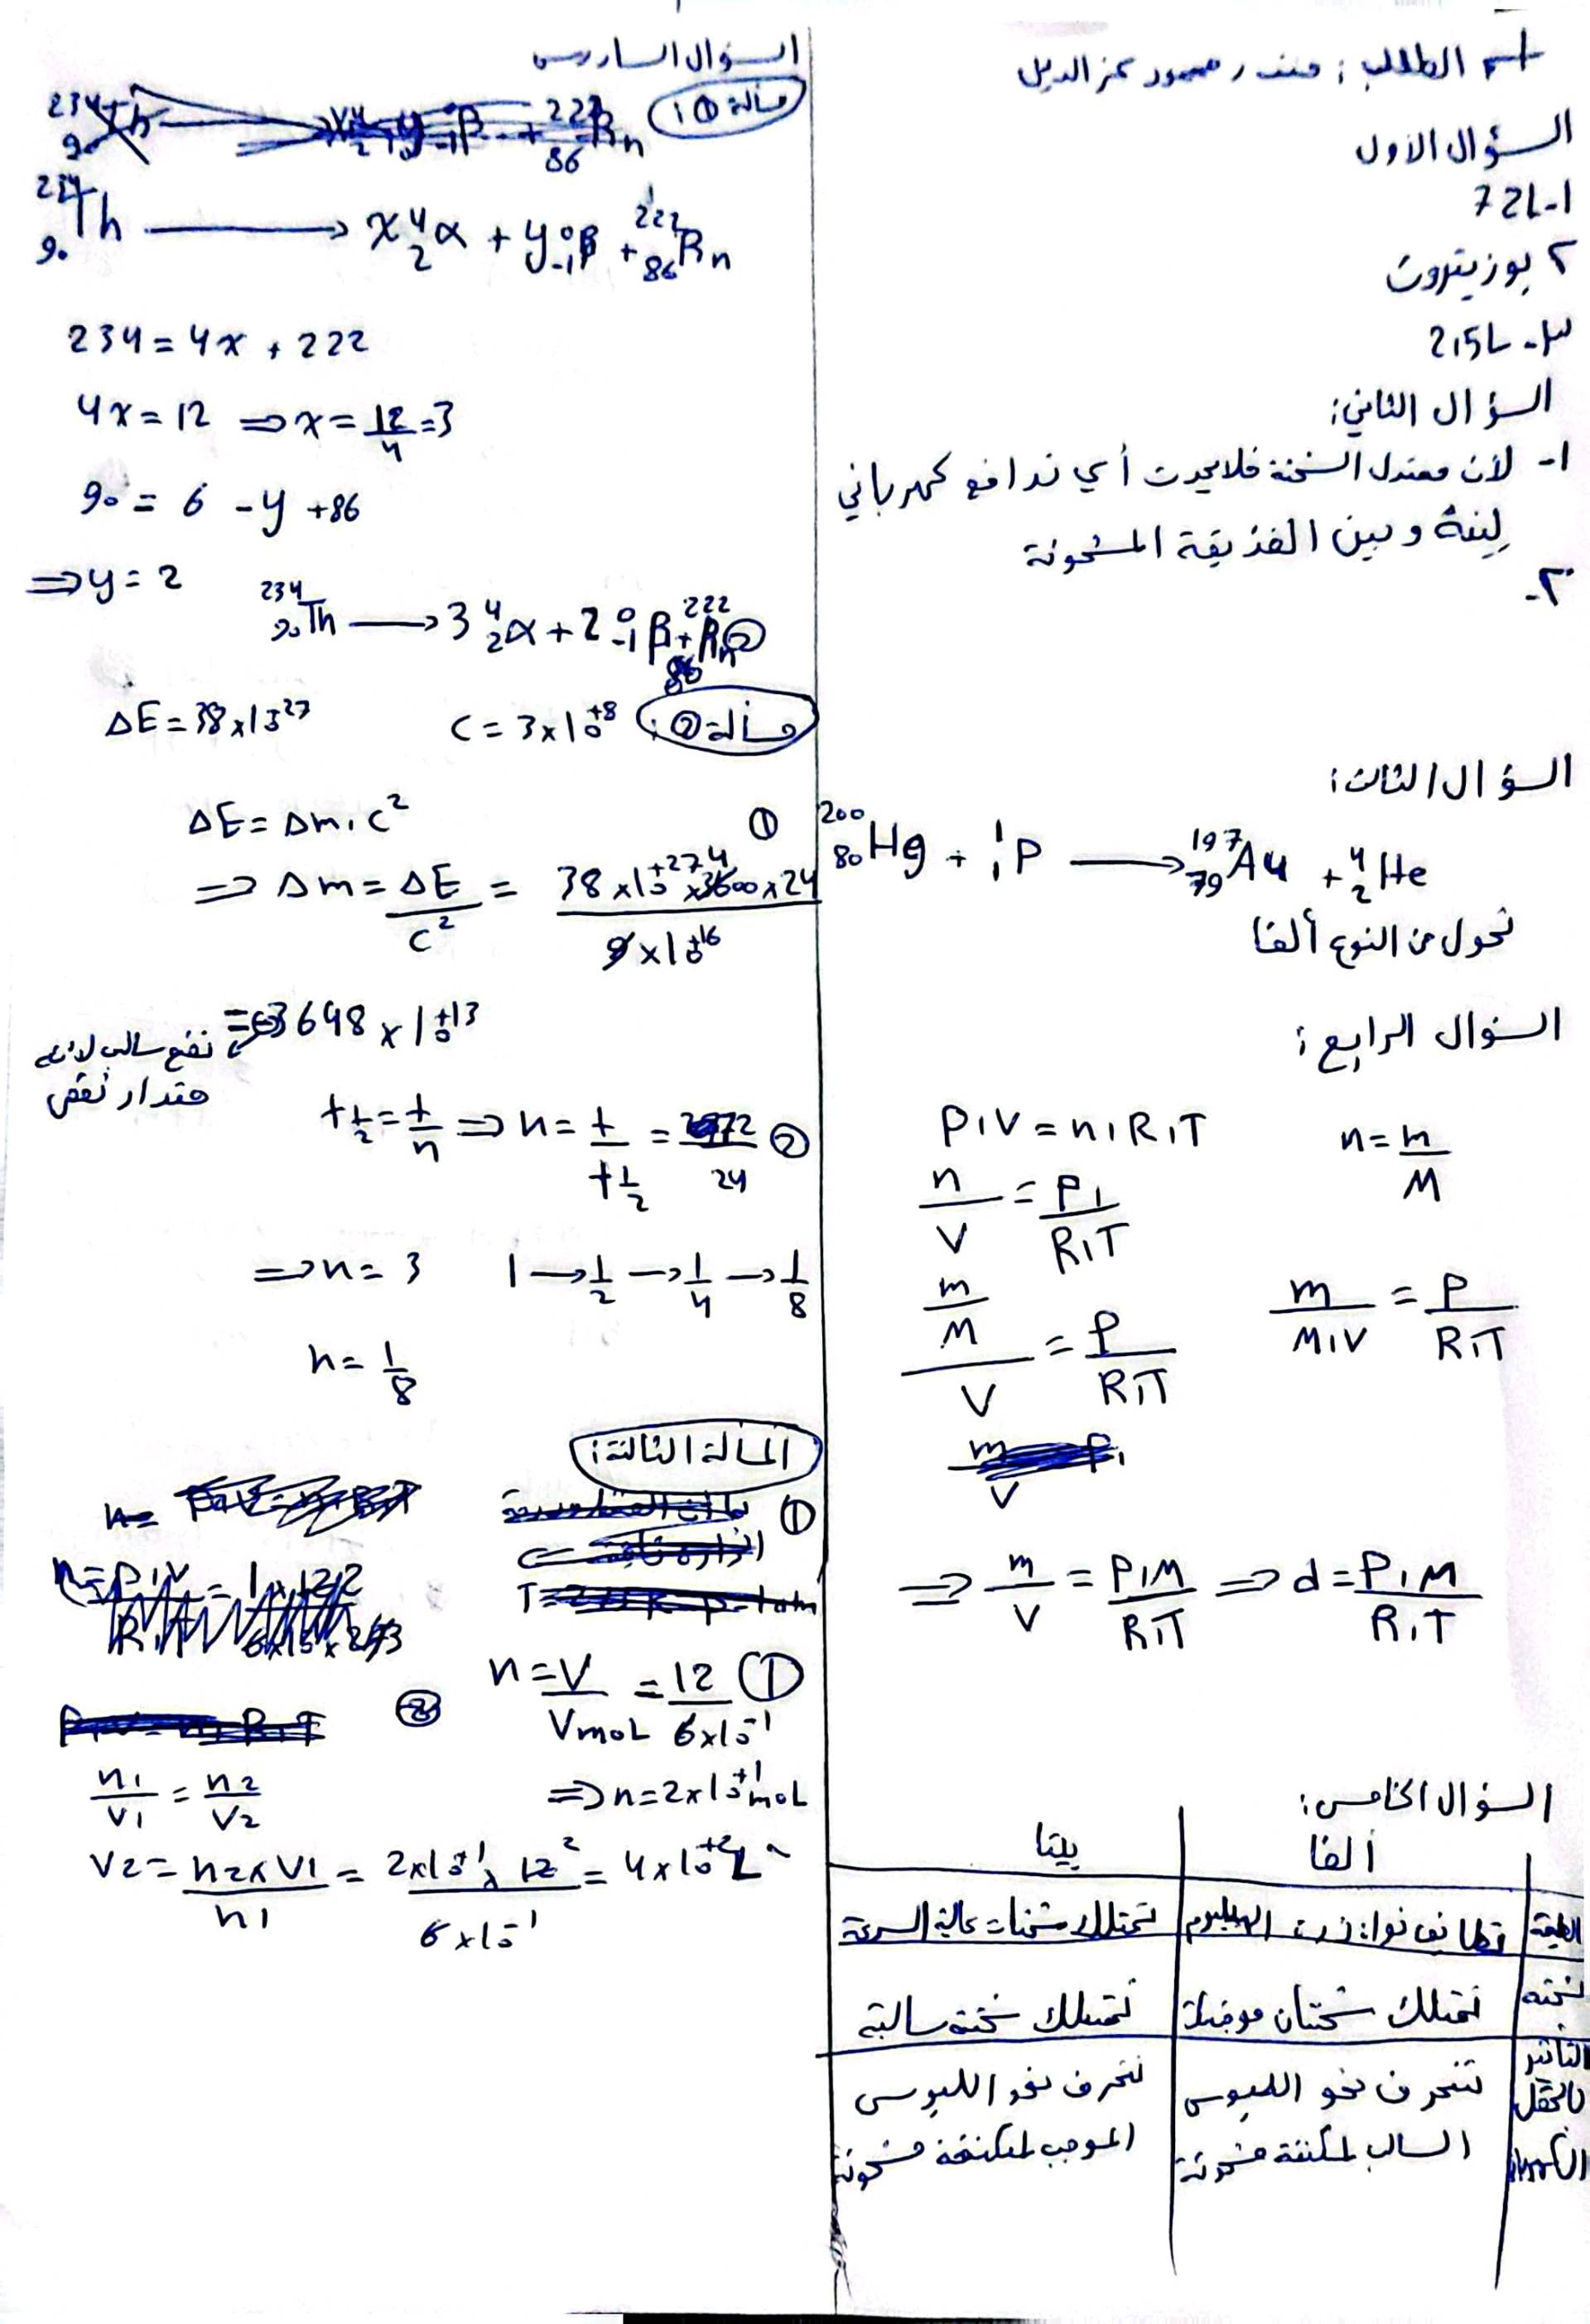 اسم الطالب : منذر محمود عز الدين
السؤال الأول
1- 72L
2 بوزيترون
3- 2,5L
السؤال الثاني:
1- لأن معتدل الشحنة فلا يحدث أي تدافع كهربائي
بينه وبين القذيفة المشحونة
2-
السؤال الثالث:
²⁰⁰₈₀Hg + ¹₁P ⟶ ¹⁹⁷₇₉Au + ⁴₂He
تحول من النوع ألفا
السؤال الرابع:
P.V = n.R.T n = m/M
n/V = P/R.T
(m/M)/V = P/R.T m/M.V = P/R.T
⇒ m/V = P.M/R.T ⇒ d = P.M/R.T
السؤال الخامس:
ألفا بيتا
الطبيعة تطابق نواة ذرت الهيليوم تمتلك شحنات عالية السرعة
شحنته تمتلك شحنتان موجبة تمتلك شحنة سالبة
التأثير بالحقل الكهربائي تنحرف نحو اللبوس السالب لمكثفة مشحونة تنحرف نحو اللبوس الموجب لمكثفة مشحونة
السؤال السادس
مسألة ① 1
²³⁴₉₀Th ⟶ x⁴₂α + y⁰₋₁β + ²²²₈₆Rn
234 = 4x + 222
4x = 12 ⇒ x = 12/4 = 3
90 = 6 - y + 86
⇒ y = 2
²³⁴₉₀Th ⟶ 3⁴₂α + 2⁰₋₁β + ²²²₈₆Rn ②
مسألة ②: C = 3×10⁺⁸ ΔE = 38×10²⁷
① ΔE = Δm.c²
⇒ Δm = ΔE/c² = 38×10⁺²⁷×3600×24 / 9×10⁺¹⁶
= 3648 × 10⁺¹³
نضع سالب لأنه
مقدار نقص
② t½ = t/n ⇒ n = t/t½ = 72/24
⇒ n = 3 1 → 1/2 → 1/4 → 1/8
n = 1/8
المسألة الثالثة:
① n = V/VmoL = 12/6×10⁻¹
⇒ n = 2×10⁺¹ moL
②
n1/V1 = n2/V2
V2 = n2×V1/n1 = 2×10⁺¹×12/6×10⁻¹ = 4×10⁺²L